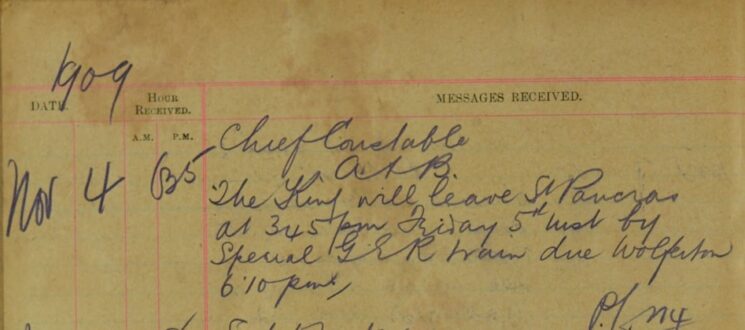 1909
DATE.
HOUR RECEIVED.
MESSAGES RECEIVED.
A.M. P.M.
Chief Constable
A & B.
Nov 4 635
The King will leave St Pancras
at 345 pm Friday 5th inst by
Special G.E.R train due Wolferton
6.10 pm